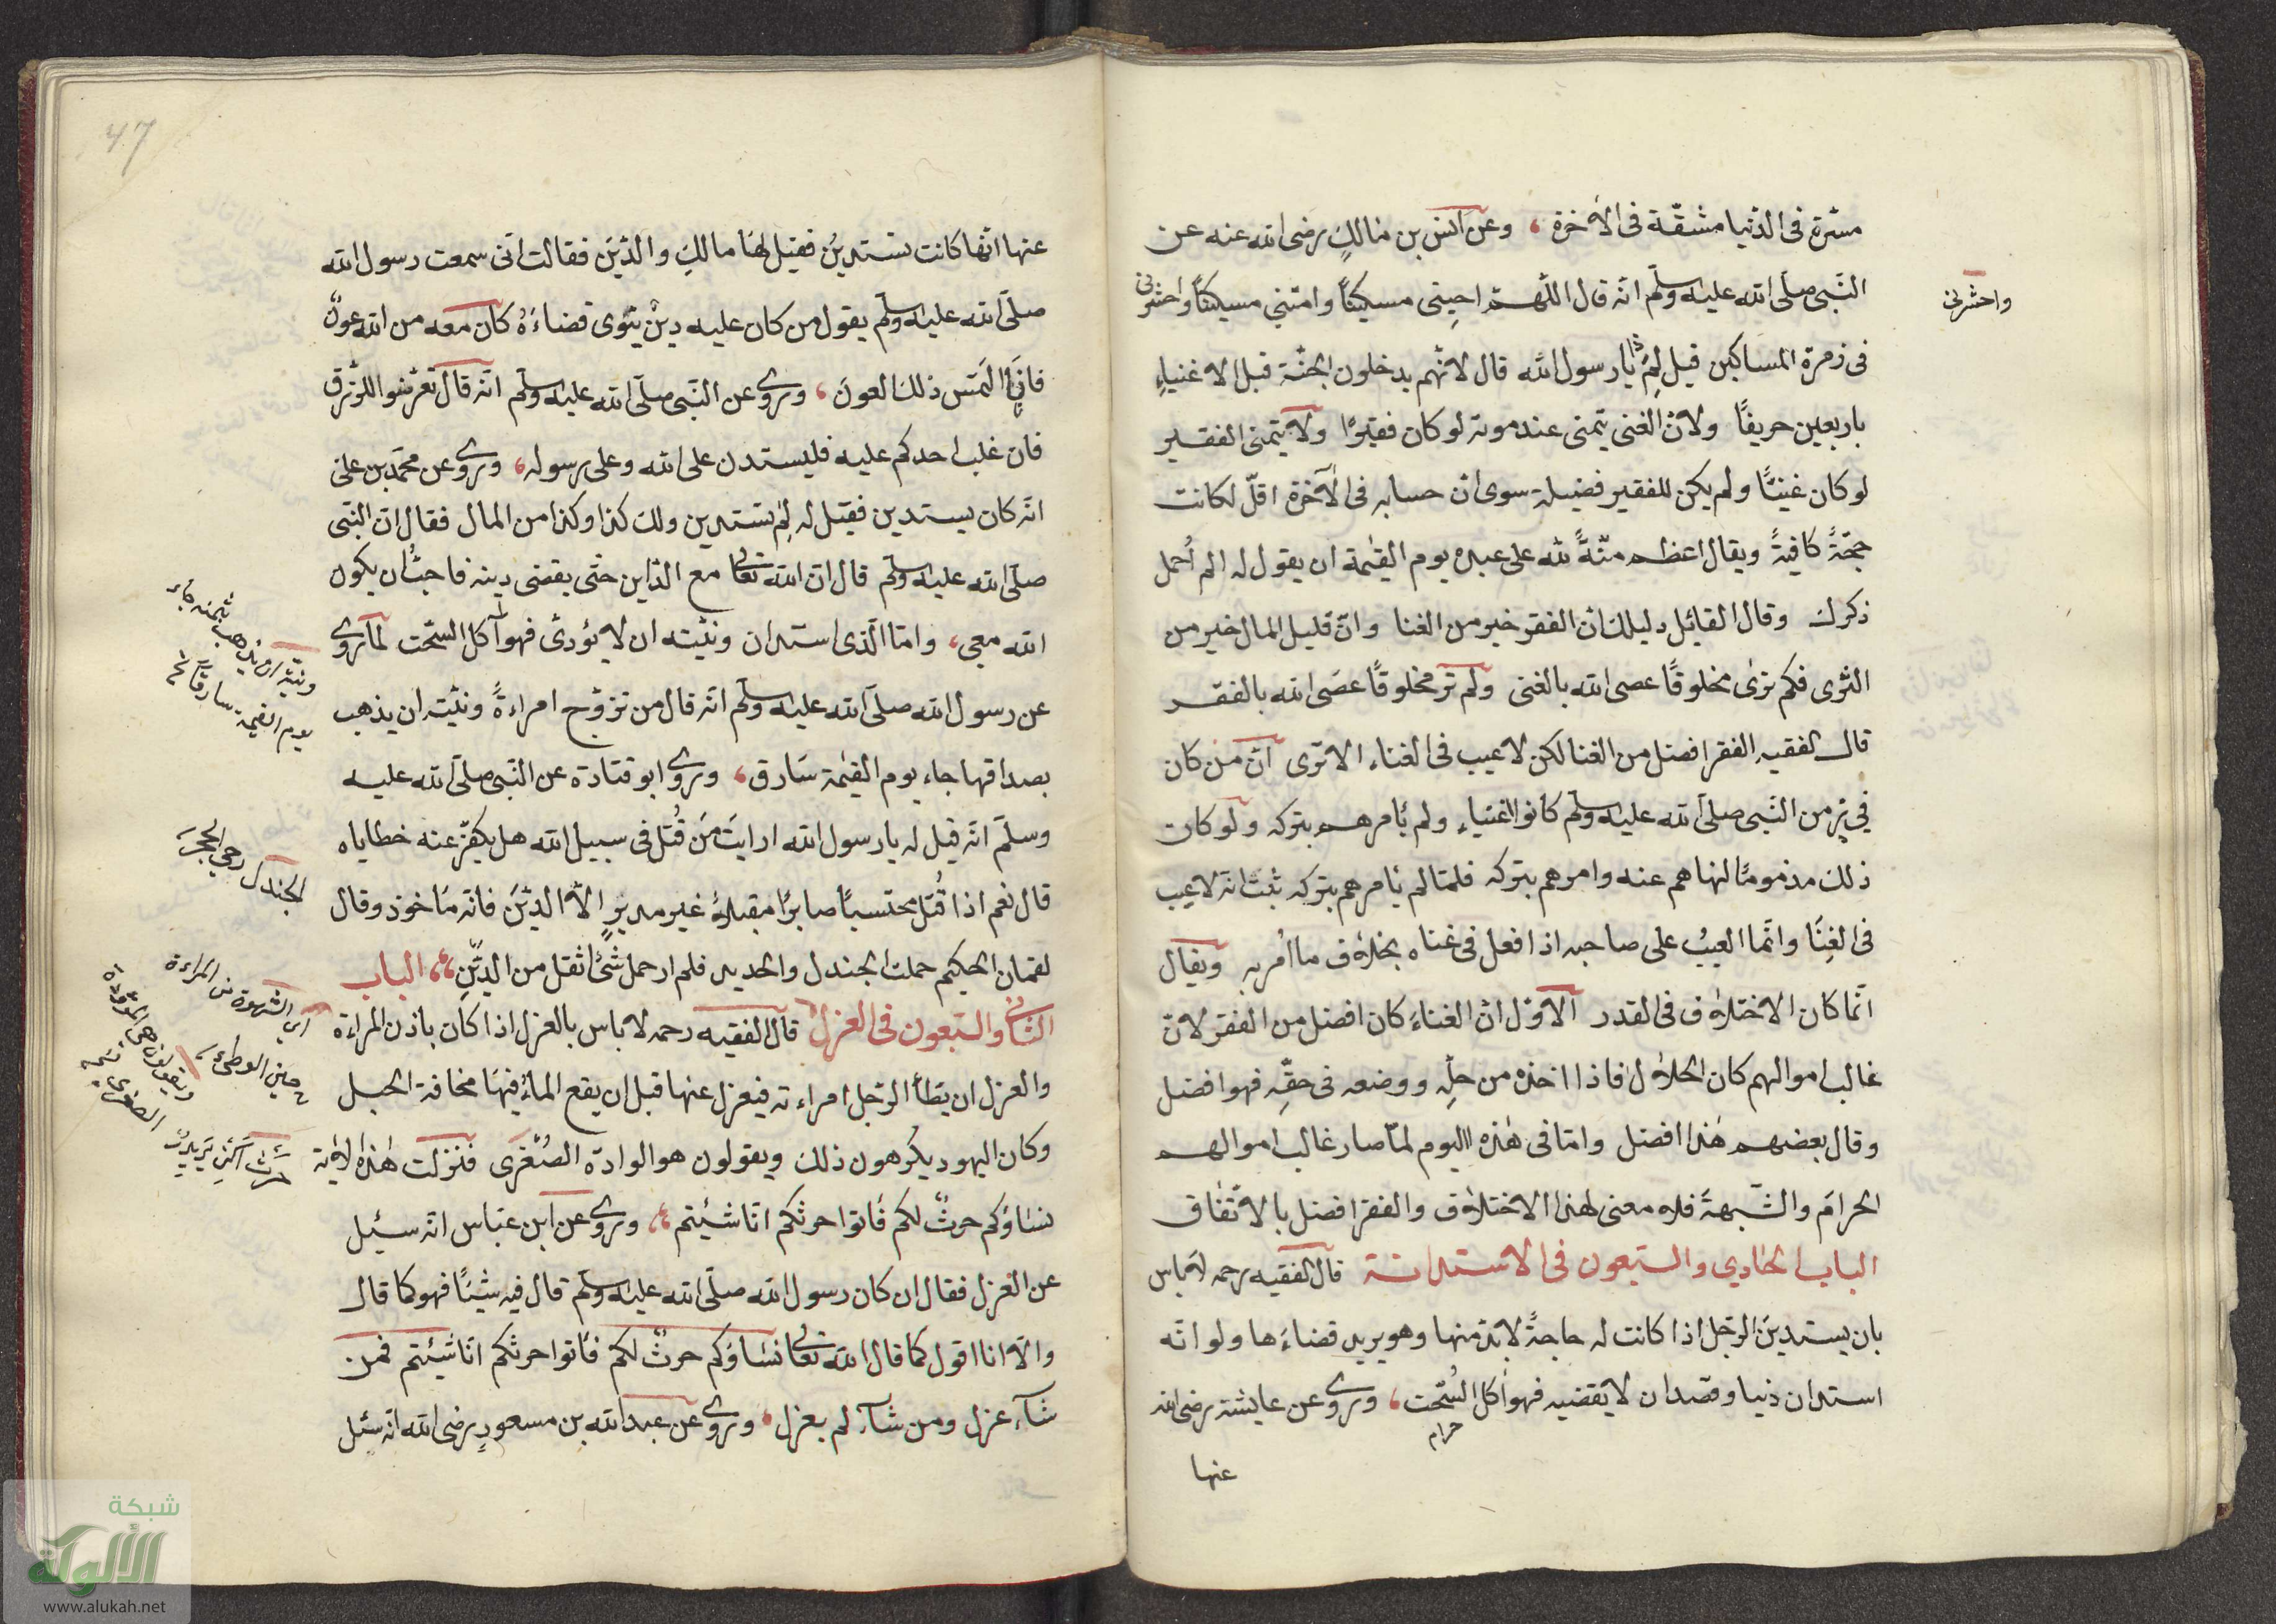 مسّرة فى الدّنيا مشقّة فى الآخرة ، وعن انس بن مالكٍ رضى الله عنه عن
النّبى صلّى الله عليه وسلّم انّه قال اللّهمّ احينى مسكيناً وامتنى مسكيناً واحشرنى
واحشرنى
فى زمرة المساكين قيل لِمَ يا رسول الله قال لانّهم يدخلون الجنّة قبل الاغنياءِ
باربعين خريفًا ولانّ الغنى يتمنى عند موته لو كان فقيرًا ولا يتمنى الفقير
لو كان غنيًّا ولم يكن للفقير فضيلة سوى انّ حسابه فى الآخرة اقلّ لكانت
حجّةً كافيةً ويقال اعظم منّةً لله على عبده يوم القيٰمة ان يقول له الم اُخمل
ذكرك وقال القائل دليلك انّ الفقر خير من الغنا وانّ قليل المال خير من
الثرى فكم ترٰى مخلوقًا عصى الله بالغنى ولم تر مخلوقًا عصَى الله بالفقر
قال الفقيه الفقر افضل من الغنا لكن لا عيب فى الغناء الا ترى انّ من كان
فى زمن النّبى صلّى الله عليه وسلّم كانوا اغنياء ولم يأمرهم بتركه ولو كان
ذلك مذمومًا لنهاهم عنه وامرهم بتركه فلمّا لم يأمرهم بتركه ثبت انّه لا عيب
فى الغِنَا وانّما العيبُ على صاحبه اذا فعل فى غناه بخلاف ما اُمر به ويقال
انّما كان الاختلاف فى القدر الاوّل انّ الغناءَ كان افضل من الفقر لانّ
غالب اموالهم كان الحلال فاذا اخذه من حلّه ووضعه فى حقّه فهو افضل
وقال بعضهم هٰذا افضل وامّا فى هٰذه اليوم لمّا صار غالب اموالهم
الحرامَ والشّبهةَ فلا معنى لهذا الاختلاف والفقر افضل بالاتّفاق
الباب الحادي والسّبعون فى الاستدانة قال الفقيه رحمه لا باس
بان يستدينَ الرّجل اذا كانت له حاجةً لا بدّ منها وهو يريد قضاءَها ولو انّه
استدان دينا وقصد ان لا يقضيه فهو اٰكل السُّحت ، وروى عن عايشة رضى الله
حرام
عنها
47
عنها انّها كانت تستدينُ فقيل لهَا مالكِ والدّينَ فقالت انّى سمعت رسول الله
صلّى الله عليه وسلّم يقول من كان عليه دينٌ ينوى قضاءَهُ كان معه من الله عونٌ
فانا التمس ذلك العونَ ، وروى عن النّبى صلّى الله عليه وسلّم انّه قال تعرّضوا للرّزق
فان غلب احدكم عليه فليستدن على الله وعلى رسوله ، وروى عن محمّد بن على
انّه كان يستدين فقيل له لِمَ تستدين ولك كذا وكذا من المال فقال انّ النّبى
صلّى الله عليه وسلّم قال انّ الله تعالى مع الدّاين حتّى يقضى دينه فاحبُّ ان يكون
الله معى ، وامّا الّذى استدان ونيّته ان لا يؤدىّ فهو آكل السّحت لما روى
عن رسول الله صلّى الله عليه وسلّم انّه قال من تزوّج امراءةً ونيّته ان يذهب
بصداقها جاء يوم القيٰمة سَارق ، وروى ابو قتادة عن النّبى صلّى الله عليه
وسلّم انّه قيل له يا رسول الله ارايتَ مَن قُتل فى سبيل الله هل يكفّر عنه خطاياه
قال نعم اذا قُتل محتسبًا صابرًا مقبلاً غير مدبرٍ الّا الدّينَ فانّه مَاخوذ وقال
لقمان الحكيم حملت الجندل والحديد فلم ار حمل شئ اثقل من الدّينِ ، الباب
الثانى والسّبعون فى العزل قال الفقيه رحمه لا باس بالعزل اذا كان باذن المراءة
والعزل ان يطأ الرّجل امراءته فيعزل عنها قبل ان يقع الماءُ فيهَا مخافة الحبل
وكان اليهود يكرهون ذلك ويقولون هو الوادّه الصُّغرى فنزلت هٰذه الاٰية
نساؤكم حرثٌ لكم فَاتوا حرثكم انّا شئتم ، وروى عن ابن عبّاس انّه سئيل
عن العزل فقال ان كان رسول الله صلّى الله عليه وسلّم قال فيه شيئًا فهو كما قال
والّا انا اقول كما قال الله تعالى نساؤكم حرثٌ لكم فَاتوا حرثكم انّا شئتم فمن
شآء عزل ومن شآء لم يعزل ، وروى عن عبد الله بن مسعودٍ رضى الله انّه سئل
ونيّته ان يذهب بثمنه جاء
يوم القيمة سارقا
الجندل رحى الحجر
اى الشهوة من المراءة
حين الوطئ
ويقولون هى المؤودة
الصغرى
شبكة
الألوكة
www.alukah.net